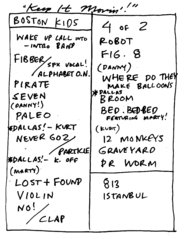 "Keep It Movin'!"
BOSTON KIDS
WAKE UP CALL INTO
- INTRO BAND
FIBBER/
SPK VOCAL!
ALPHABET O.N.
PIRATE
SEVEN
(DANNY!)
PALEO
*DALLAS! - KURT
NEVER GO2/
PARTICLE
*DALLAS! - K. OFF
(MARTY)
LOST + FOUND
VIOLIN
NO!/
CLAP
4 OF 2
ROBOT
FIG. 8
(DANNY)
WHERE DO THEY
MAKE BALLOONS
*DALLAS
BROOM
BED. BED BED
FEATURING MARTY!
(KURT)
12 MONKEYS
GRAVEYARD
DR WORM
813
ISTANBUL